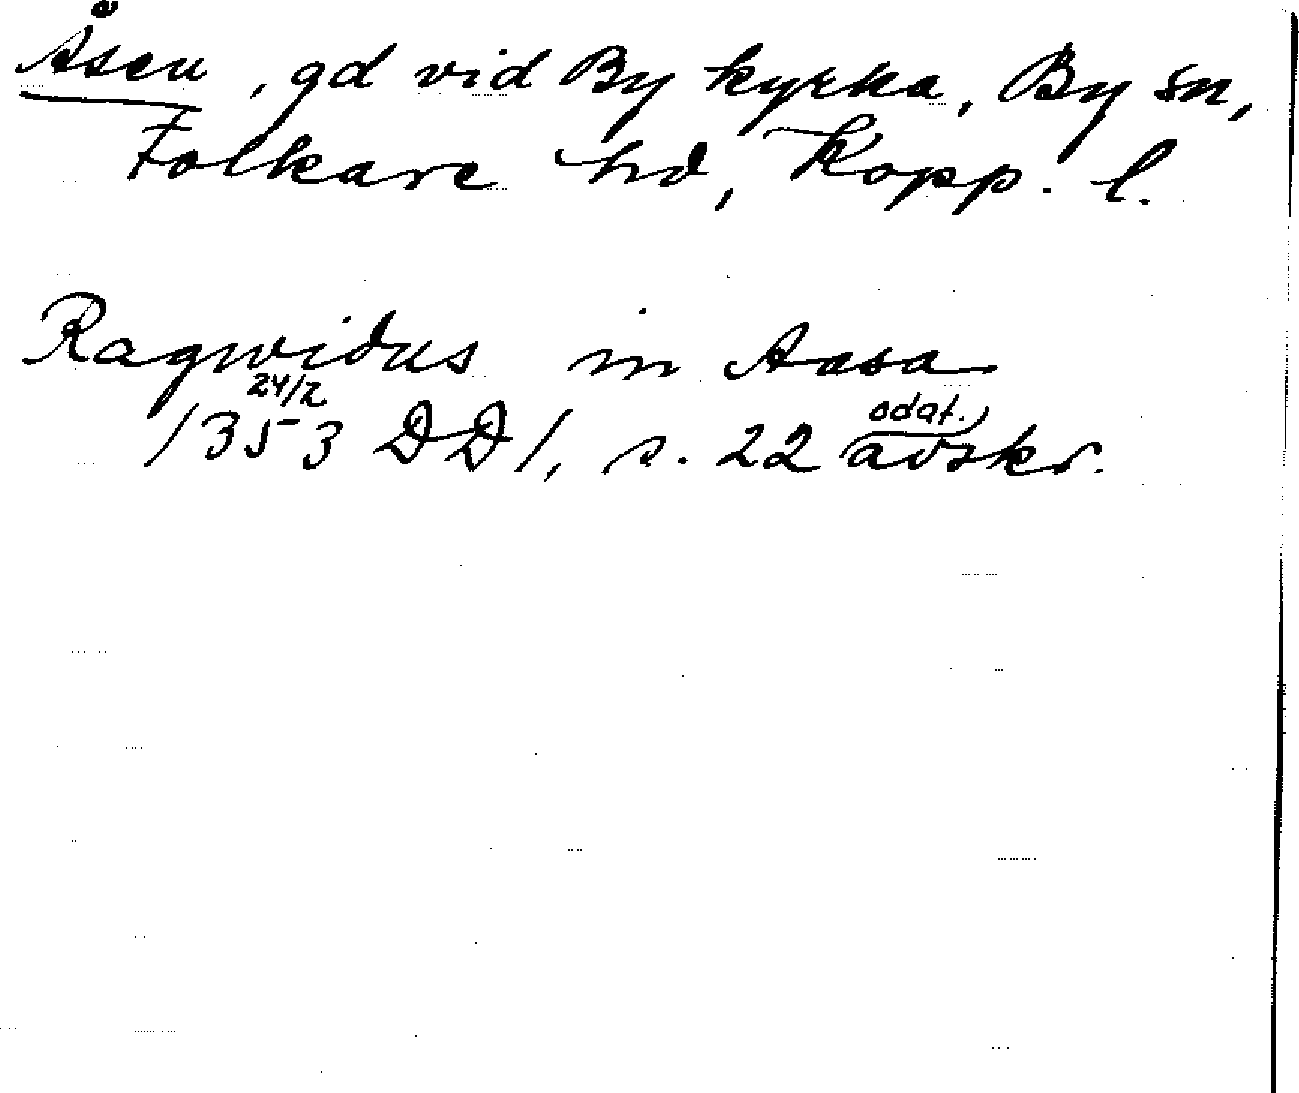 Åsen, gd vid By kyrka, By sn,
Folkare hd, Kopp. l.
Ragwidus in Aasa
24/2
1353 DD 1, s. 22 odat. avskr.